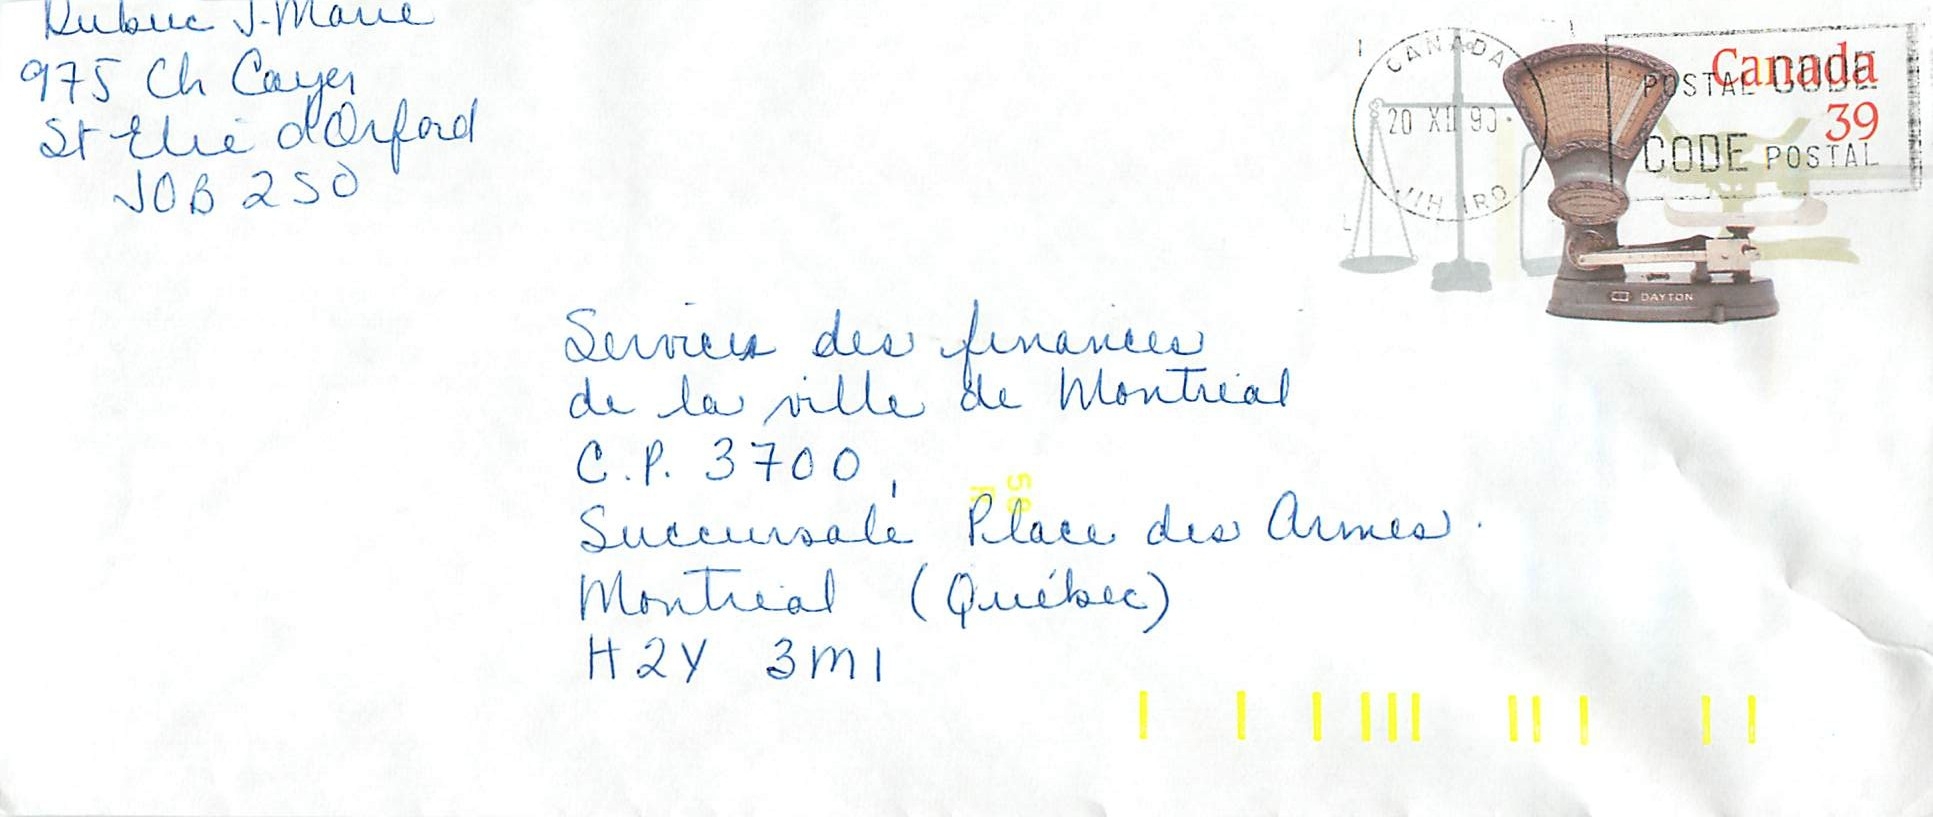 Dubuc J. Marie
975 Ch Cayer
St Elie d'Orford
J0B 2S0
CANADA
20 XII 90
Canada
39
POSTAL CODE
CODE POSTAL
DAYTON
Services des finances
de la ville de Montréal
C.P. 3700,
Succursale Place des Armes.
Montréal (Québec)
H2Y 3M1